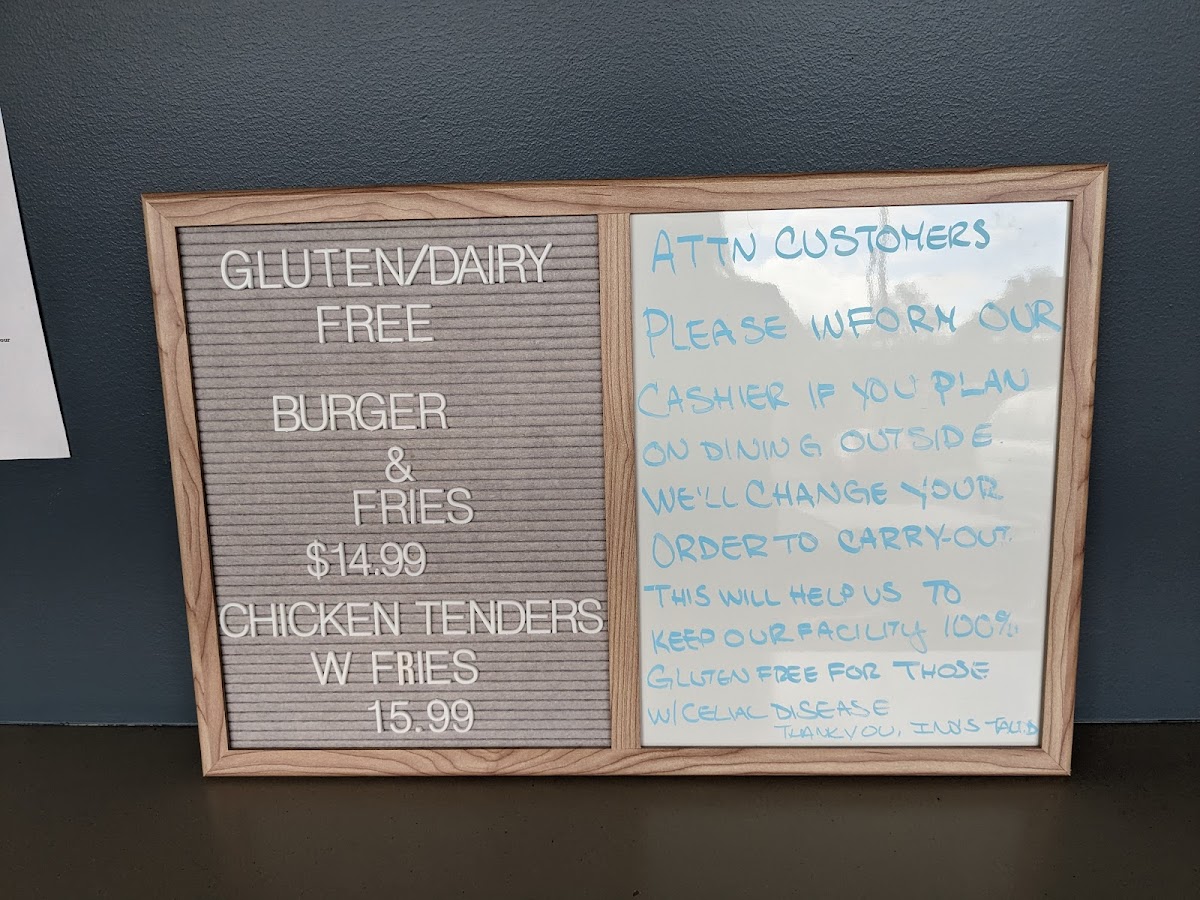 GLUTEN/DAIRY
FREE
BURGER
&
FRIES
$14.99
CHICKEN TENDERS
W FRIES
15.99
ATTN CUSTOMERS
PLEASE INFORM OUR
CASHIER IF YOU PLAN
ON DINING OUTSIDE
WE'LL CHANGE YOUR
ORDER TO CARRY-OUT.
THIS WILL HELP US TO
KEEP OUR FACILITY 100%
GLUTEN FREE FOR THOSE
W/CELIAC DISEASE
THANK YOU,
our